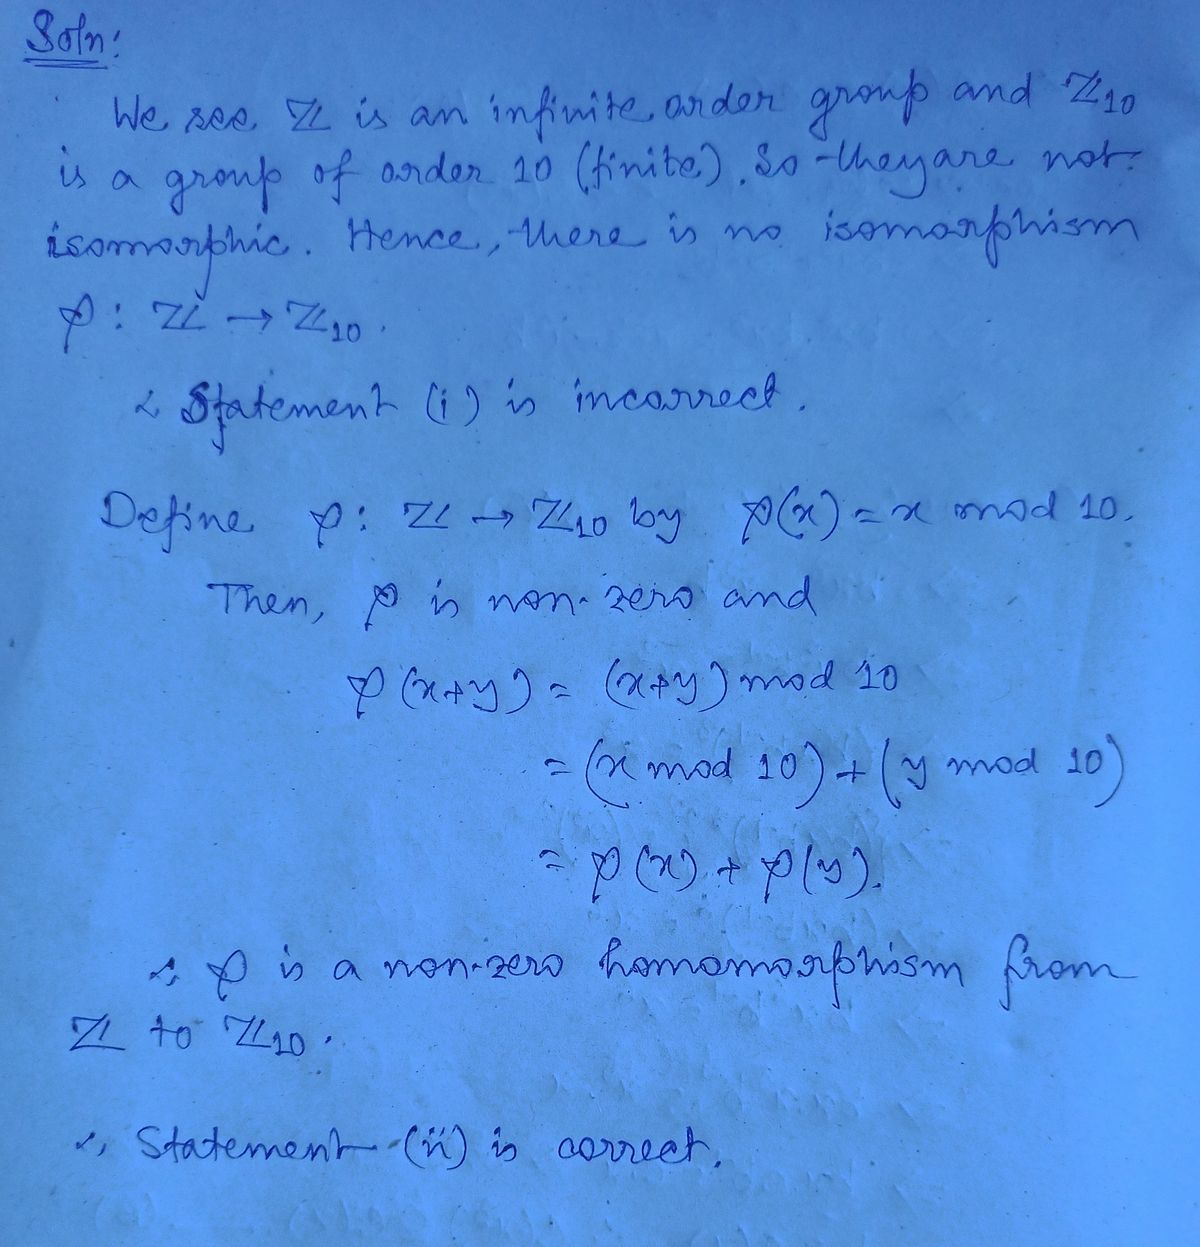 Soln:
We see ℤ is an infinite order group and ℤ₁₀
is a group of order 10 (finite). So they are not
isomorphic. Hence, there is no isomorphism
φ: ℤ → ℤ₁₀.
∴ Statement (i) is incorrect.
Define φ: ℤ → ℤ₁₀ by φ(x) = x mod 10.
Then, φ is non-zero and
φ(x+y) = (x+y) mod 10
= (x mod 10) + (y mod 10)
= φ(x) + φ(y).
∴ φ is a non-zero homomorphism from
ℤ to ℤ₁₀.
∴ Statement (ii) is correct.